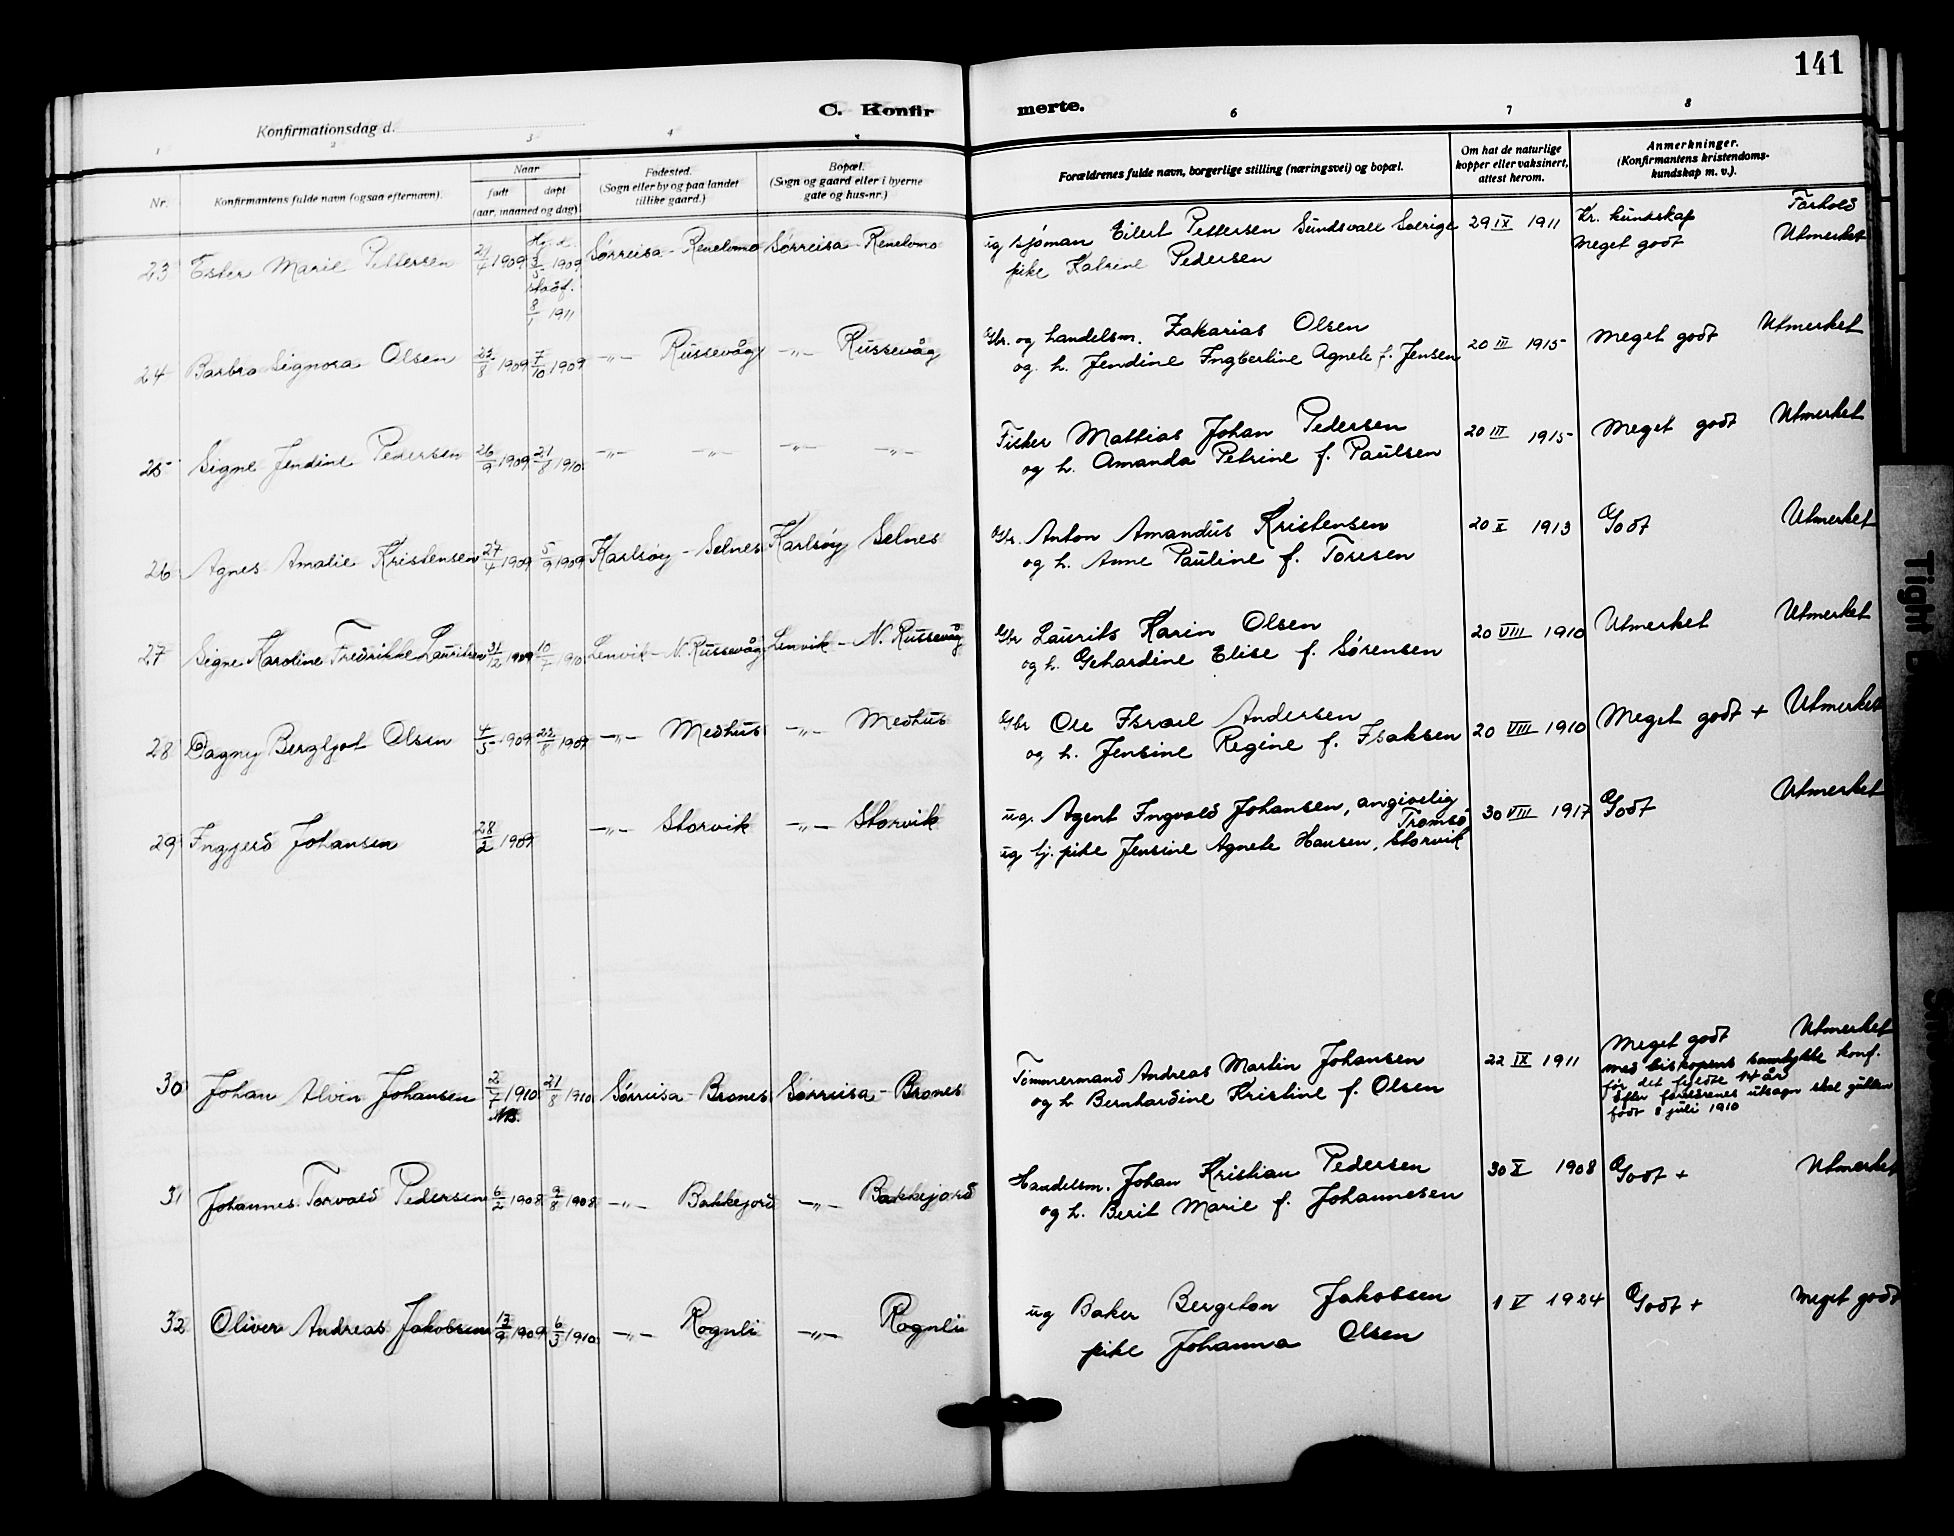 141
C. Konfir merte.
Konfirmationsdag d.
1 2 3 4 6 7 8
Nr.
Konfirmantens fulde navn (ogsaa efternavn).
Naar
født døpt
(aar, maaned og dag)
Fødested.
(Sogn eller by og paa landet
tillike gaard.)
Bopæl.
(Sogn og gaard eller i byerne
gate og hus-nr.)
Forældrenes fulde navn, borgerlige stilling (næringsvei) og bopæl.
Om hat de naturlige
kopper eller vaksinert,
attest herom.
Anmerkninger.
(Konfirmantens kristendoms-
kundskap m. v.).
23 Ester Marie Pettersen 21/4 1909 Hj. d. 3/5 1909 stadf. 8/1 1911 Sørreisa - Reneelvmo Sørreisa - Reneelvmo
ug sjøman Eilert Pettersen Sundsvall Sverige 29 IX 1911 Kr. kundskap Forhold
pike Katrine Pedersen Meget godt Utmerket
24 Barbro Signora Olsen 23/8 1909 7/10 1909 -„- Russevåg -„- Russevåg
Gbr. og handelsm. Zakarias Olsen 20 III 1915 Meget godt Utmerket
og h. Jendine Ingbertine Agnete f. Jensen
25 Signe Jendine Pedersen 26/9 1909 21/8 1910 -„- -„- -„- -„-
Fisker Mattias Johan Pedersen 20 III 1915 Meget godt Utmerket
og h. Amanda Petrine f. Paulsen
26 Agnes Amalie Kristensen 27/4 1909 5/9 1909 Karlsøy - Selnes Karlsøy Selnes
Gbr. Anton Amandus Kristensen 20 X 1913 Godt Utmerket
og h. Anne Pauline f. Toresen
27 Signe Karoline Fredrikke Lauritsen 31/12 1909 10/7 1910 Lenvik - N. Russevåg Lenvik - N. Russevåg
Gbr Laurits Karin Olsen 20 VIII 1910 Utmerket Utmerket
og h. Gehardine Elise f. Sørensen
28 Dagny Bergljot Olsen 4/5 1909 22/8 1909 -„- Medhus -„- Medhus
Gbr Ole Israel Andersen 20 VIII 1910 Meget godt + Utmerket
og h. Jensine Regine f. Isaksen
29 Ingjerd Johansen 28/2 1909 -„- Storvik -„- Storvik
ug. Agent Ingvald Johansen, angivelig 30 VIII 1917 Godt Utmerket
Tromsø
ug tj. pike Jensine Agnete Hansen, Storvik
30 Johan Alvin Johansen 2/7 1910 NB. 21/8 1910 Sørreisa - Brones Sørreisa - Brones
Tømmermand Andreas Martin Johansen 22 IX 1911 Meget godt Utmerket
og h Bernhardine Kristine f. Olsen
med biskopens samtykke konf.
før det fyldte 14 år
Efter forældrenes utsagn skal gutten
født 8 juli 1910
31 Johannes Torvald Pedersen 6/2 1908 9/8 1908 -„- Bakkejord -„- Bakkejord
Handelsm. Johan Kristian Pedersen 30 X 1908 Godt + Utmerket
og h. Berit Marie f. Johannesen
32 Oliver Andreas Jakobsen 13/9 1909 6/3 1910 -„- Rognli -„- Rognli
ug Baker Bergeton Jakobsen 1 V 1924 Godt + Meget godt
pike Johanna Olsen